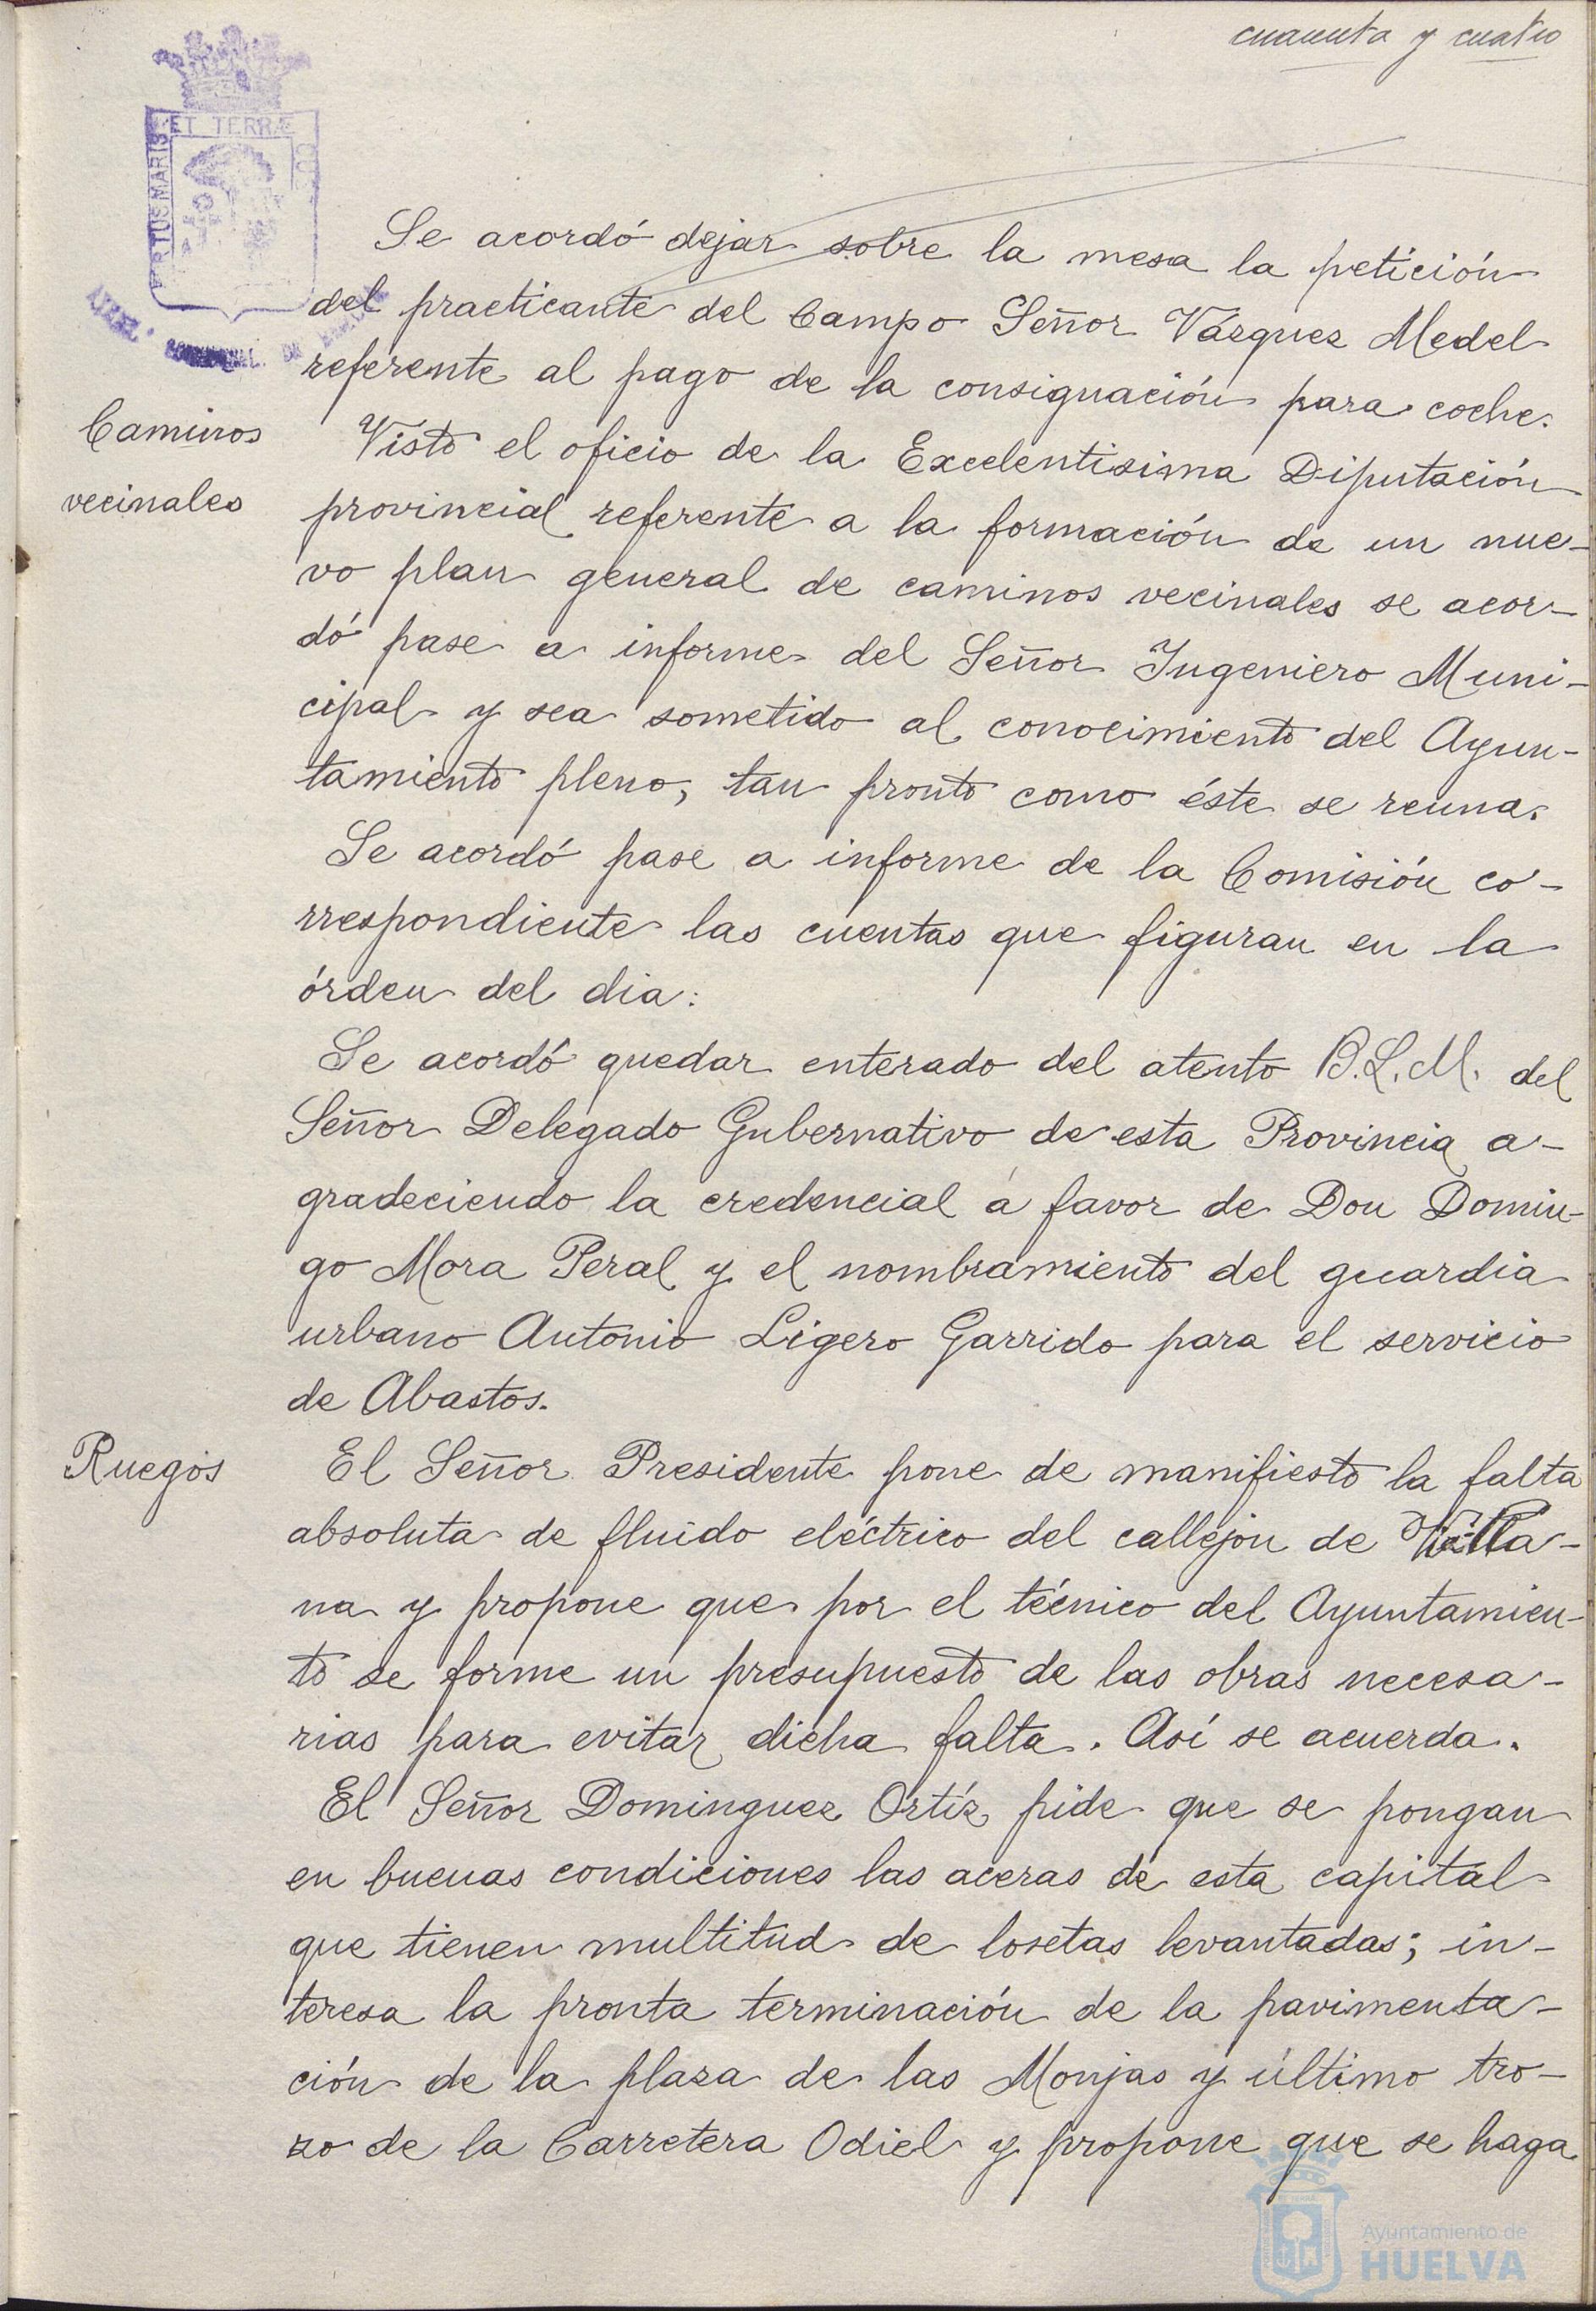 cuarenta y cuatro
PORTUS MARIS ET TERRÆ CUS
Se acordó dejar sobre la mesa la petición
del practicante del Campo Señor Vázquez Medel
referente al pago de la consignación para coche.
Caminos
vecinales
Visto el oficio de la Excelentisima Diputación
provincial referente a la formación de un nue-
vo plan general de caminos vecinales se acor-
dó pase a informe del Señor Ingeniero Muni-
cipal y sea sometido al conocimiento del Ayun-
tamiento pleno, tan pronto como éste se reuna.
Se acordó pase a informe de la Comisión co-
rrespondiente las cuentas que figuran en la
órden del dia:
Se acordó quedar enterado del atento B.L.M. del
Señor Delegado Gubernativo de esta Provincia a-
gradeciendo la credencial á favor de Don Domin-
go Mora Peral y el nombramiento del guardia
urbano Antonio Ligero Garrido para el servicio
de Abastos.
Ruegos
El Señor Presidente pone de manifiesto la falta
absoluta de fluido eléctrico del callejon de Villa-
na y propone que por el técnico del Ayuntamien-
to se forme un presupuesto de las obras necesa-
rias para evitar dicha falta. Así se acuerda.
El Señor Dominguez Ortíz pide que se pongan
en buenas condiciones las aceras de esta capital
que tienen multitud de losetas levantadas; in-
teresa la pronta terminación de la pavimenta-
ción de la plaza de las Monjas y último tro-
zo de la Carretera Odiel y propone que se haga
Ayuntamiento de
HUELVA